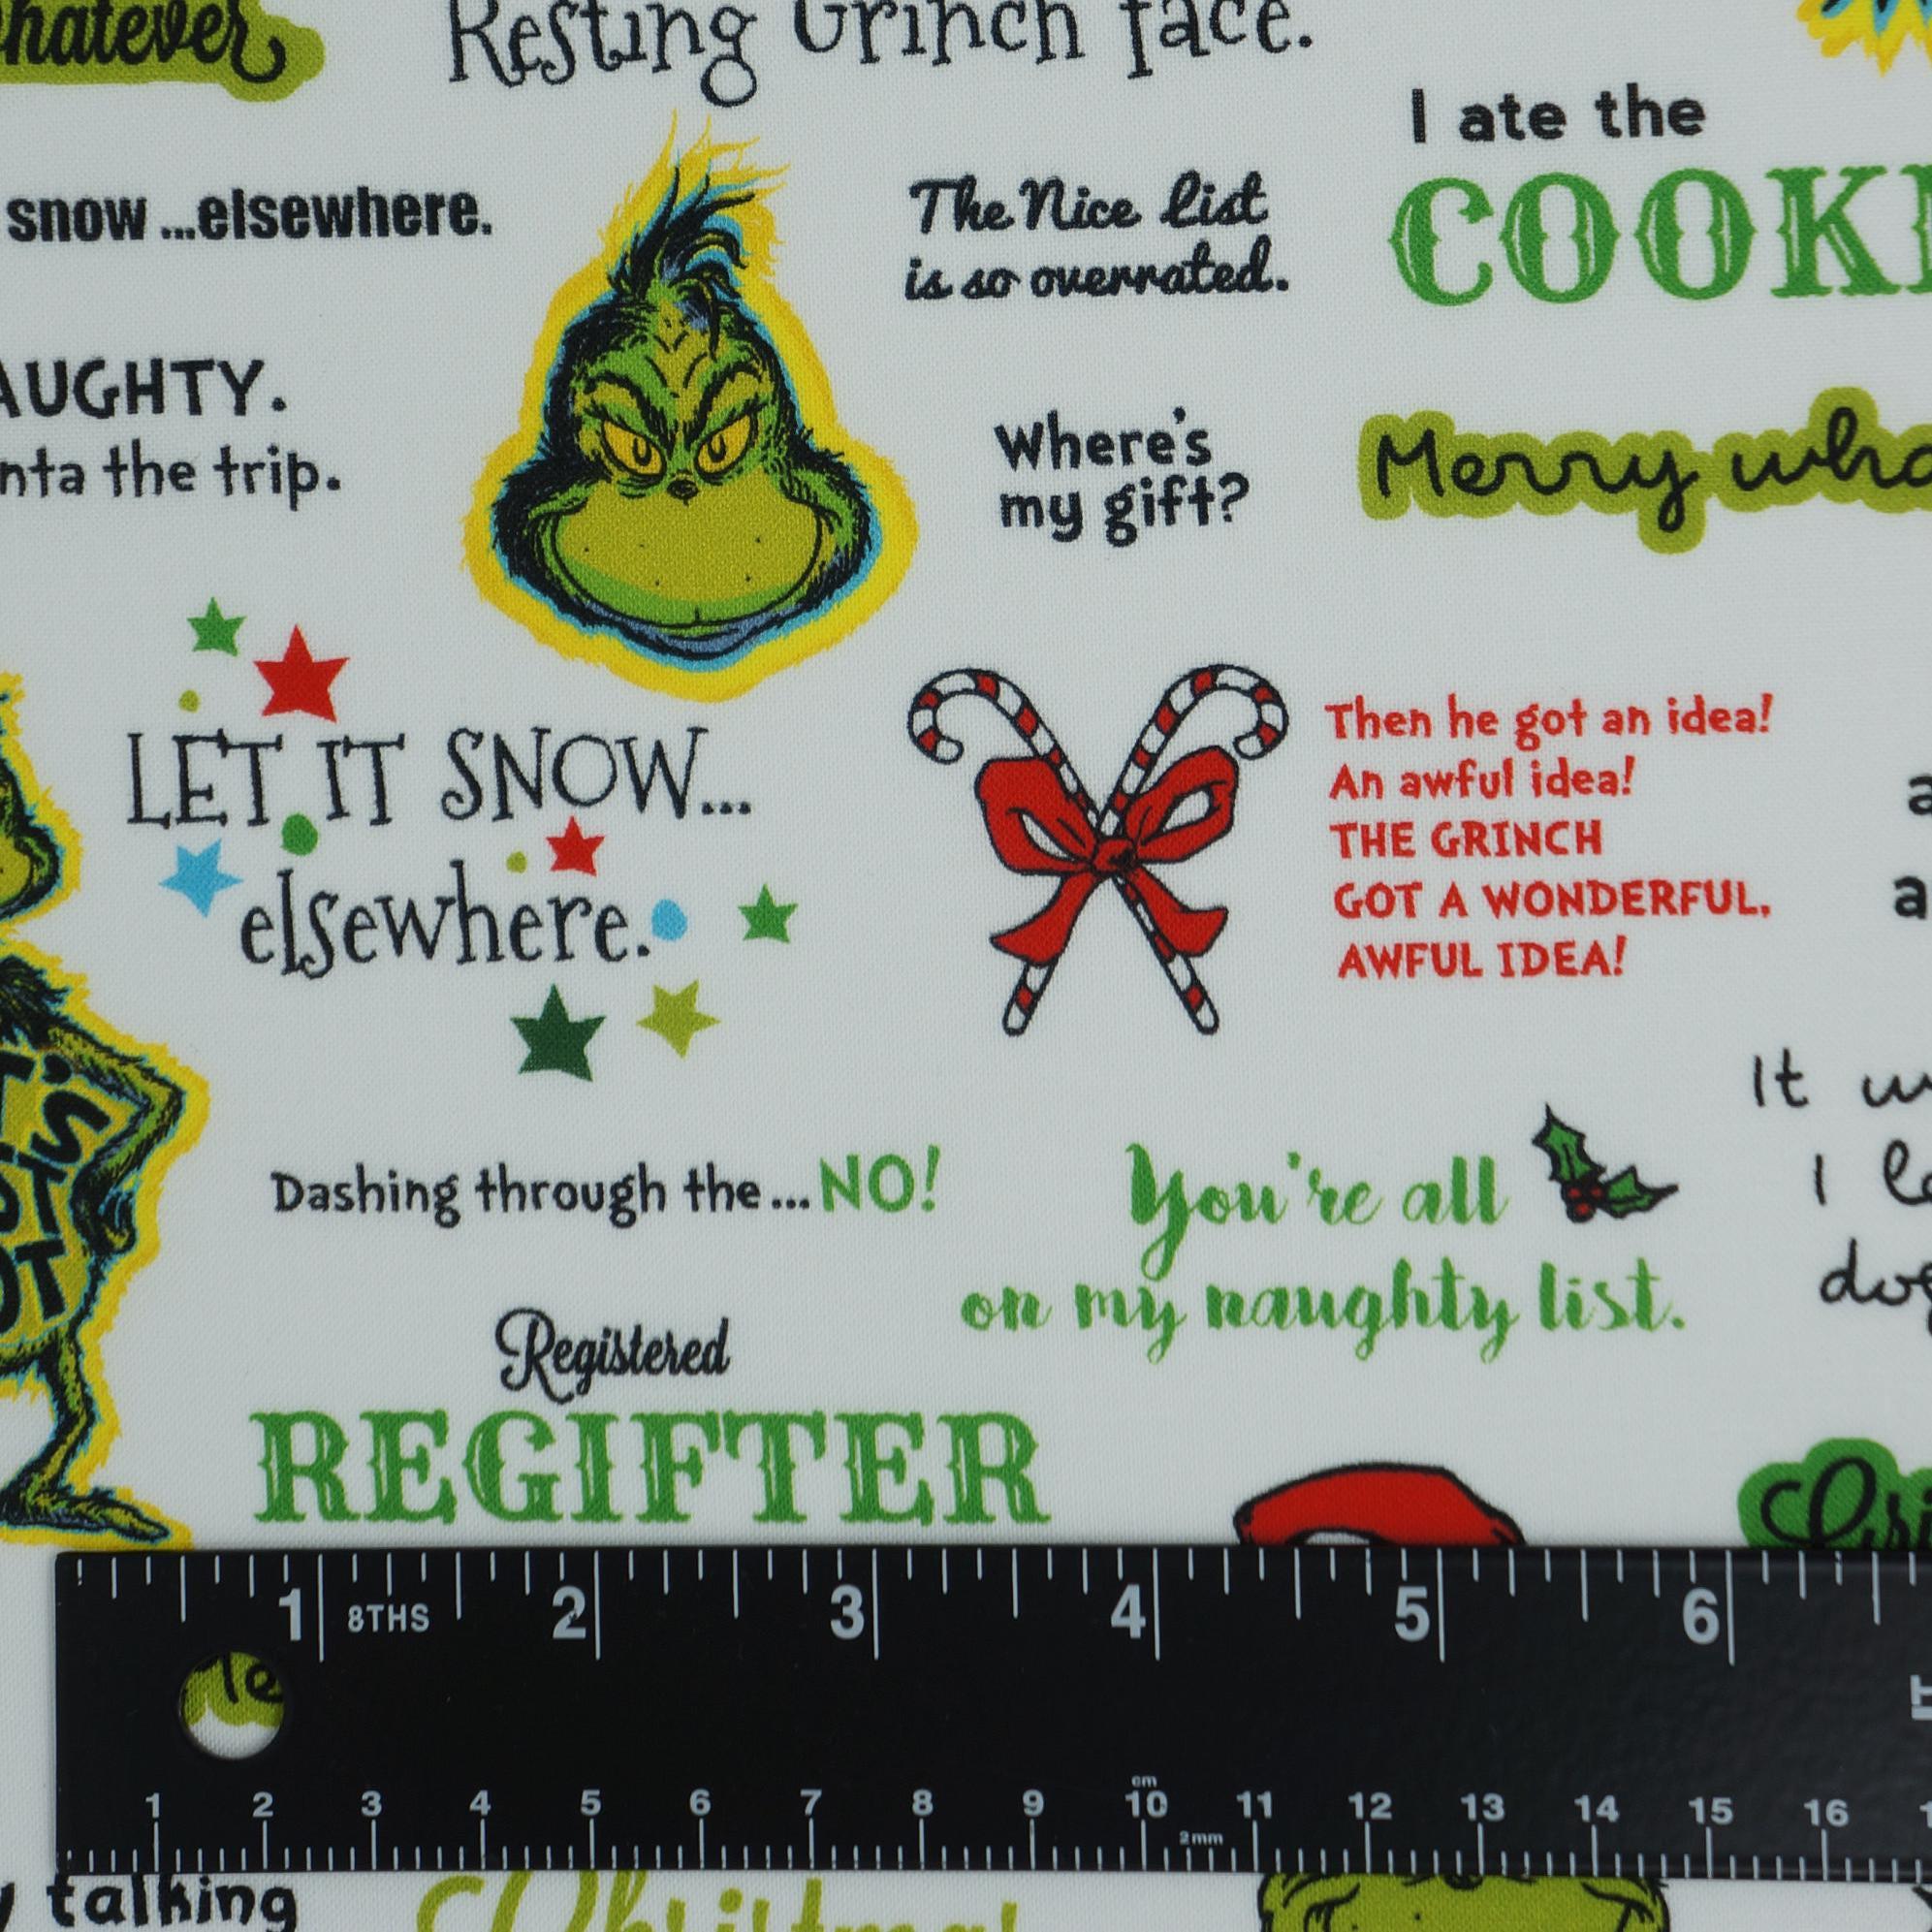 Resting Grinch face.
I ate the
snow ...elsewhere.
The Nice List
is so overrated.
the trip.
Where's
my gift?
Merry
LET IT SNOW...
elsewhere.
Then he got an idea!
An awful idea!
THE GRINCH
GOT A WONDERFUL,
AWFUL IDEA!
It
I
Dashing through the... NO!
You're all
on my naughty list.
Registered
REGIFTER
1 8THS 2 3 4 5 6
cm
1 2 3 4 5 6 7 8 9 10 11 12 13 14 15 16
2mm
talking